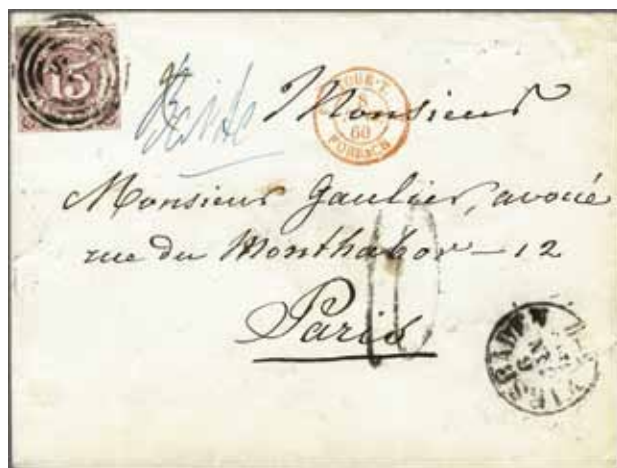 15
TOUR-T.
8
60
FORBACH
Monsieur
Monsieur Gaulier, avoué
rue du Monthabor — 12
Paris